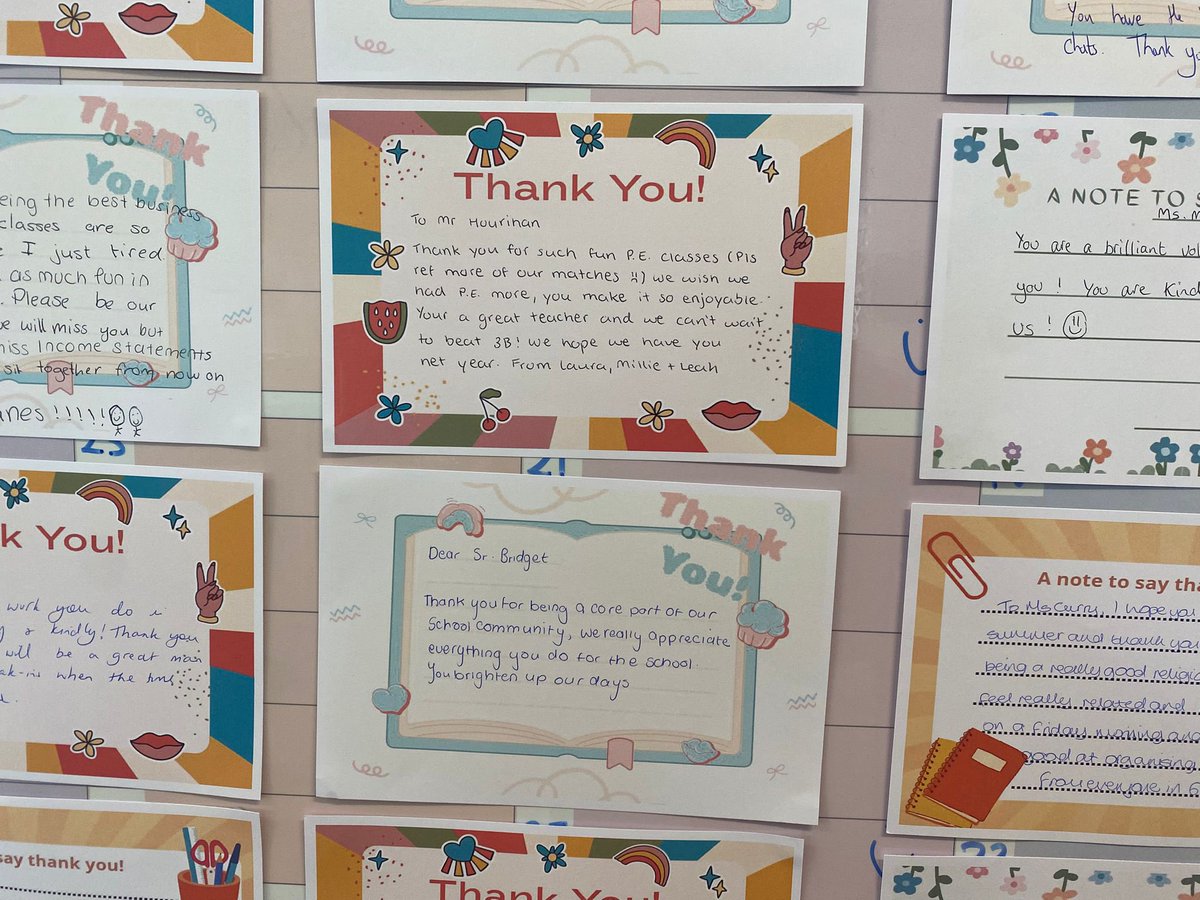 You have the
chats. Thank yo
Thank
You!
eing the best business
classes are so
e I just tired
as much fun in
. Please be our
ve will miss you but
miss Income Statements
sit together from now on
nes!!!!!
Thank You!
To Mr Hourihan
Thank you for such fun P.E. classes (Pls
ref more of our matches !!) we wish we
had P.E. more, you make it so enjoyable.
Your a great teacher and we can't wait
to beat 3B! we hope we have you
net year. From Laura, Millie + Leah
A NOTE TO S
Ms. M
You are a brilliant vol
you! You are kind
us!
23
21
k You!
work you do
kindly! Thank you
will be a great
when the
Thank
You!
Dear Sr. Bridget
Thank you for being a core part of our
School community, we really appreciate
everything you do for the school.
You brighten up our days
A note to say tha
To Ms Curry, I hope you
summer and thank you
being a really good religio
feel really related and
on a Friday morning and
good at organising
From everyone in 6
say thank you!
Thank You!